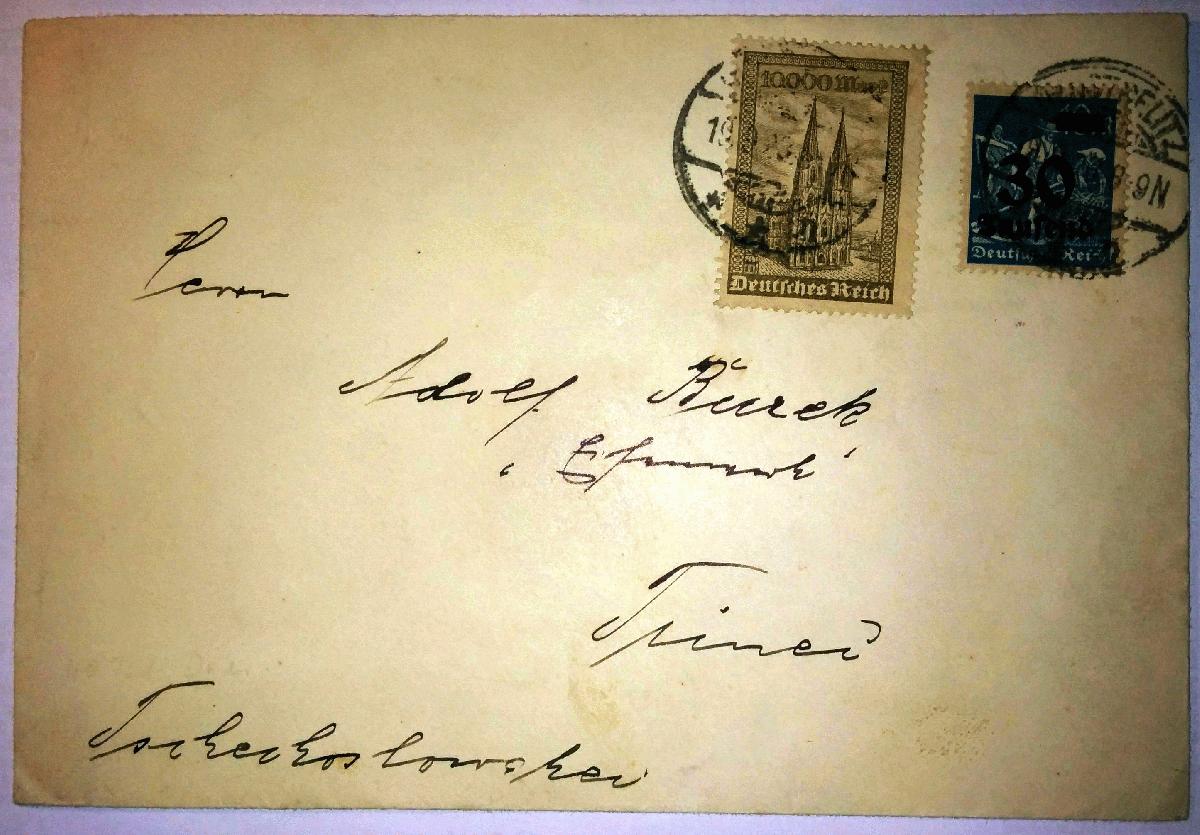 10000 Mark
Deutsches Reich
30
Tausend
Deutsches Reich
8-9N
Herrn
Adolf Burek
Trinec
Tschechoslowakei